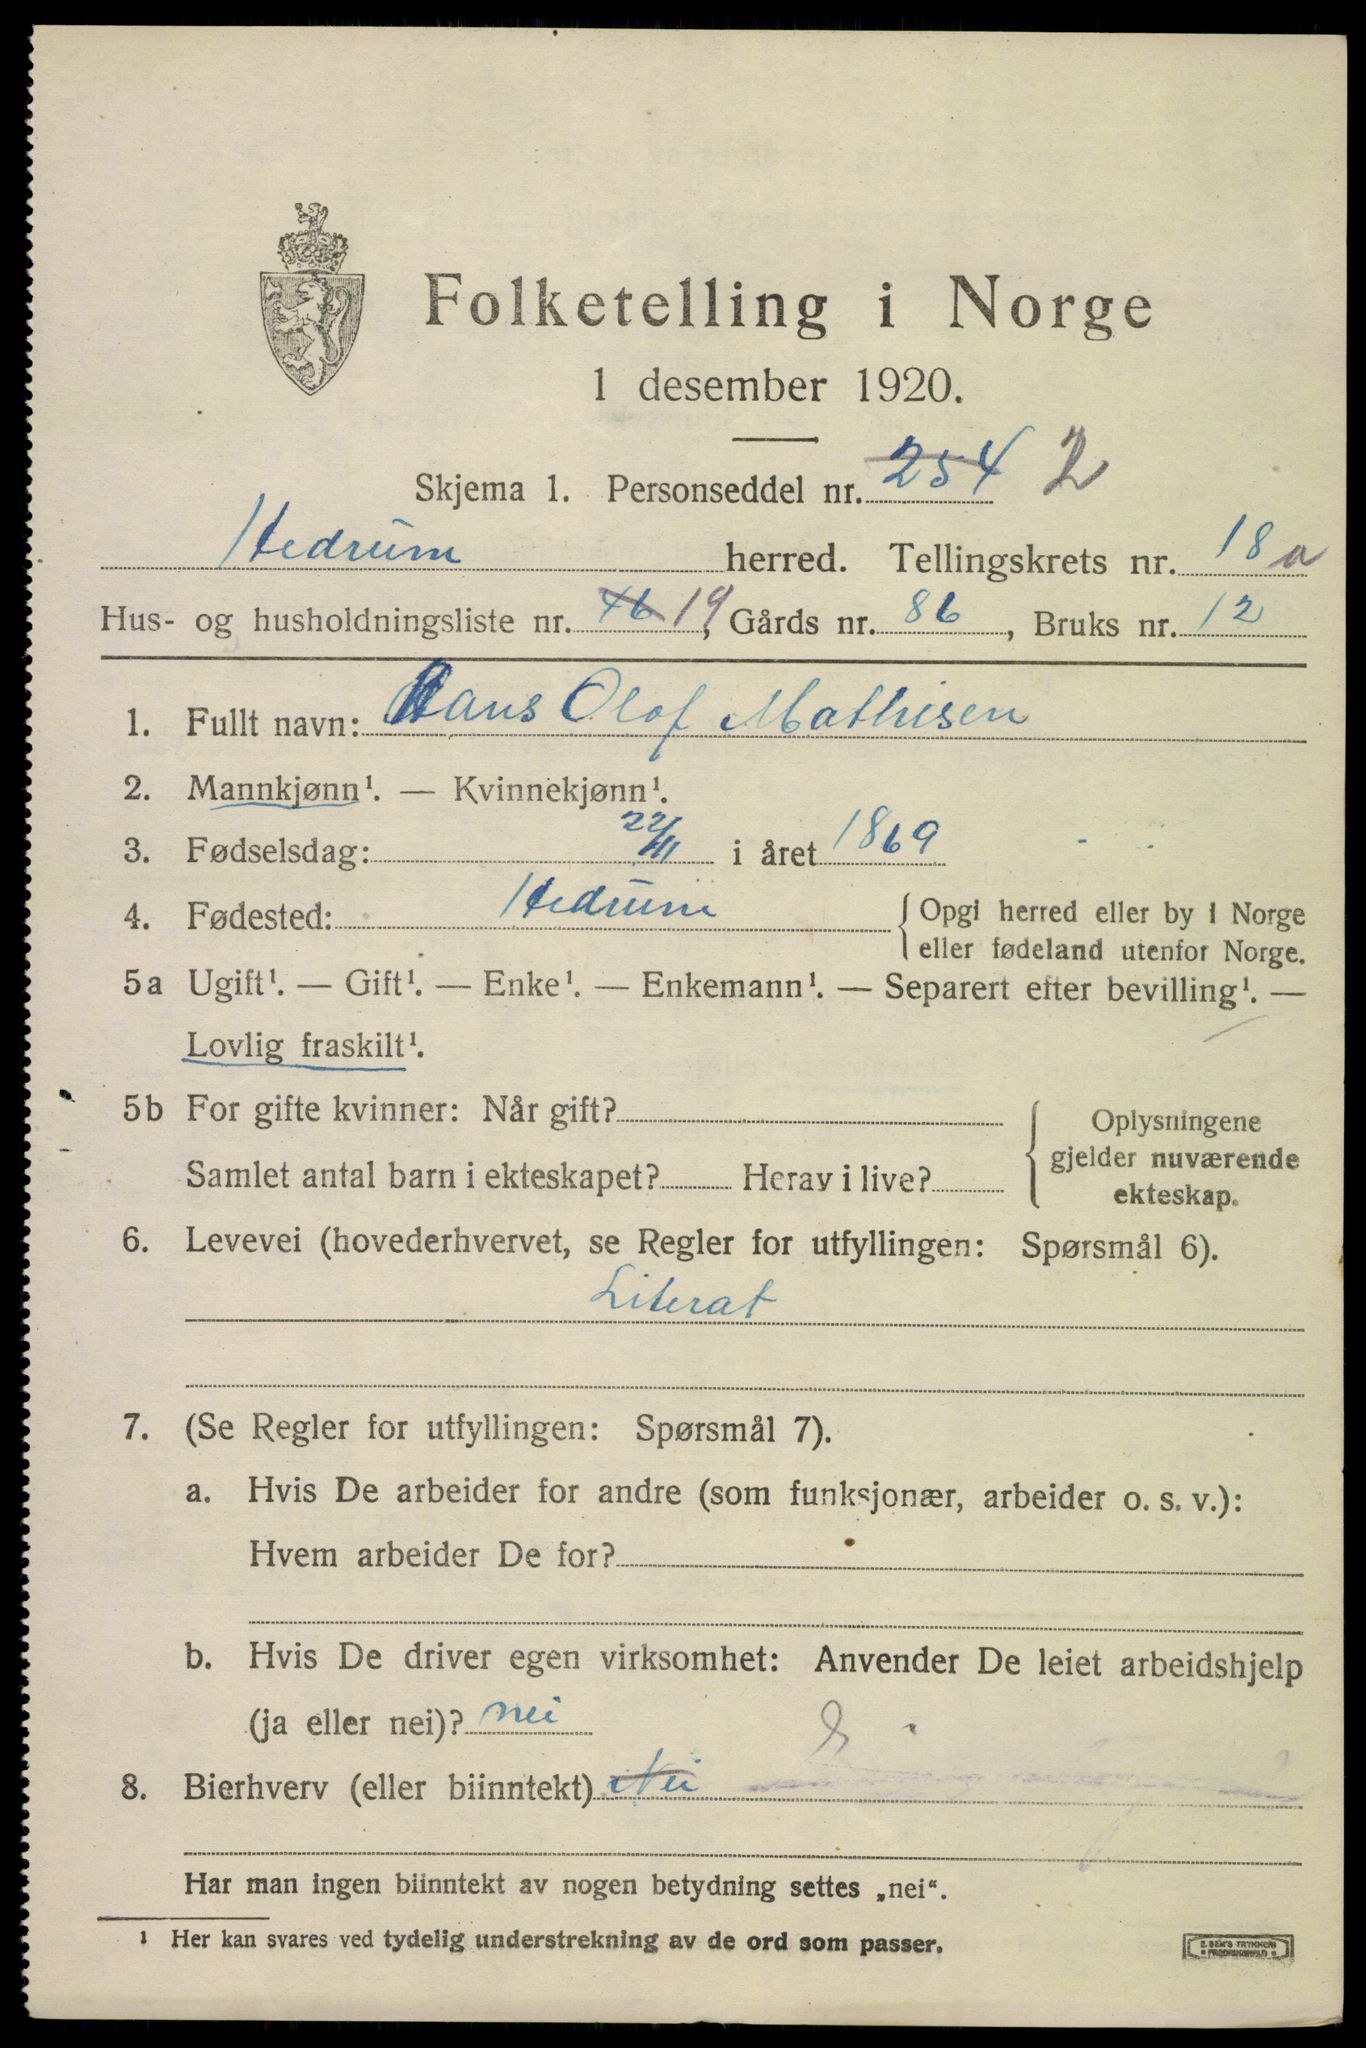 Folketelling i Norge
1 desember 1920.
Skjema 1. Personseddel nr. 254 2
Hedrum herred. Tellingskrets nr. 18 a
Hus- og husholdningsliste nr. 46 19, Gårds nr. 86, Bruks nr. 12
1. Fullt navn: Hans Olof Mathisen
2. Mannkjønn¹. — Kvinnekjønn¹.
3. Fødselsdag: 22/11 i året 1869
4. Fødested: Hedrum { Opgi herred eller by i Norge
eller fødeland utenfor Norge.
5a Ugift¹. — Gift¹. — Enke¹. — Enkemann¹. — Separert efter bevilling¹. —
Lovlig fraskilt¹.
5b For gifte kvinner: Når gift?
Samlet antal barn i ekteskapet? Herav i live?
{ Oplysningene
gjelder nuværende
ekteskap.
6. Levevei (hovederhvervet, se Regler for utfyllingen: Spørsmål 6).
Literat
7. (Se Regler for utfyllingen: Spørsmål 7).
a. Hvis De arbeider for andre (som funksjonær, arbeider o. s. v.):
Hvem arbeider De for?
b. Hvis De driver egen virksomhet: Anvender De leiet arbeidshjelp
(ja eller nei)? nei
8. Bierhverv (eller biinntekt) Nei
Har man ingen biinntekt av nogen betydning settes „nei“.
¹ Her kan svares ved tydelig understrekning av de ord som passer.